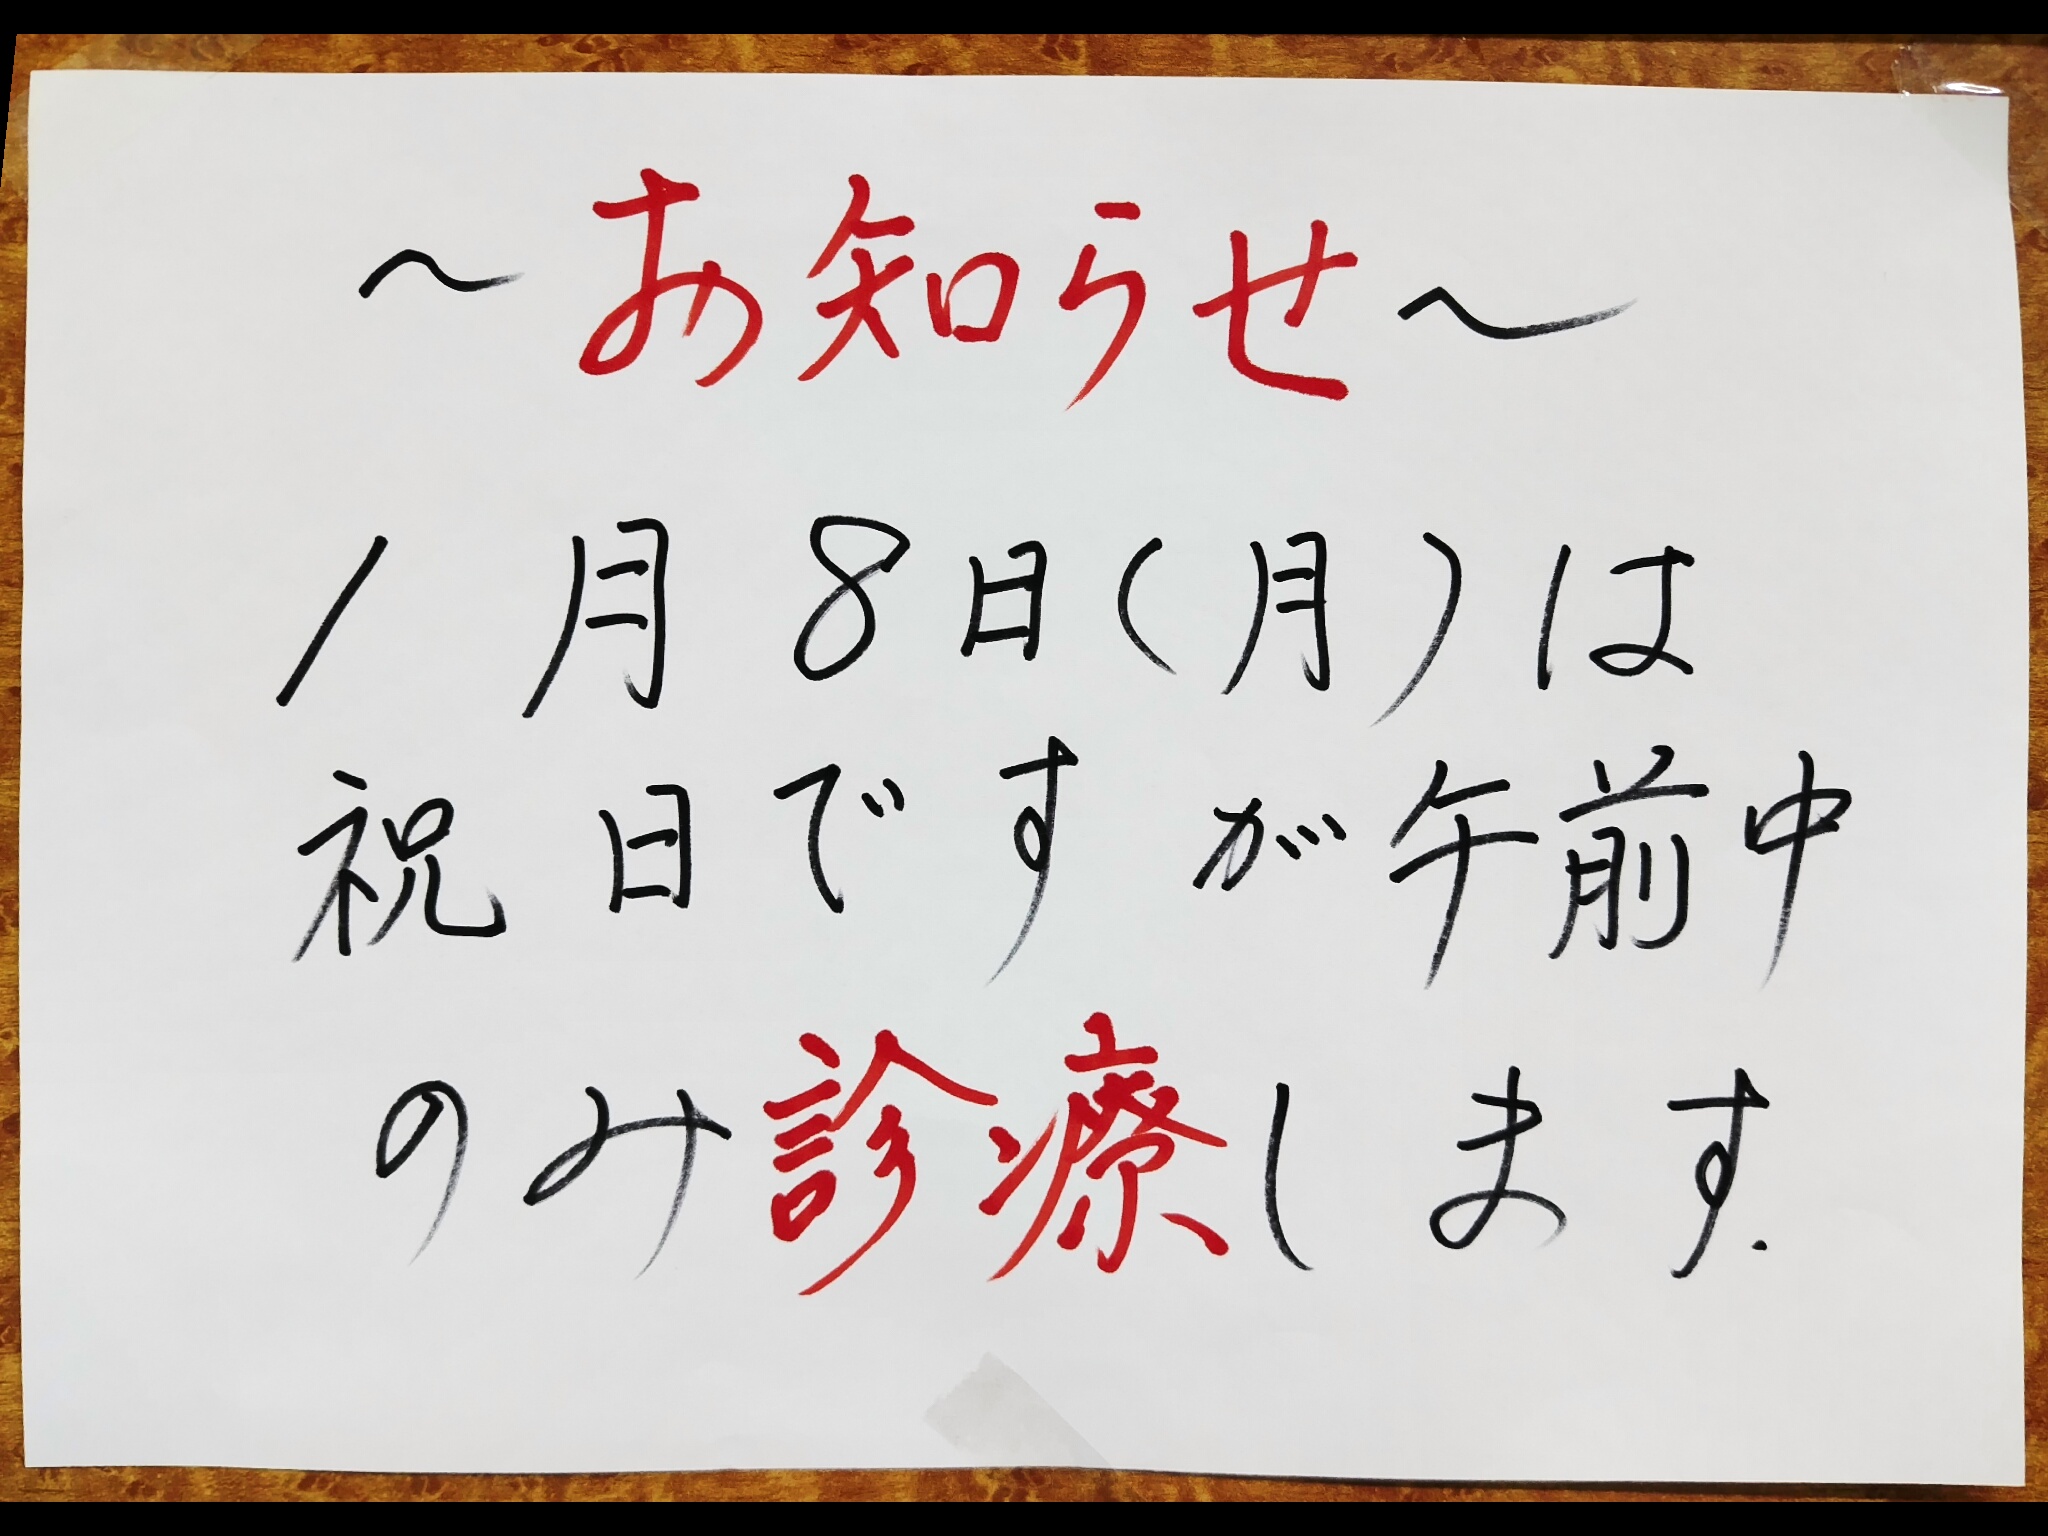 ～お知らせ～
1月8日(月)は
祝日ですが午前中
のみ診療します.